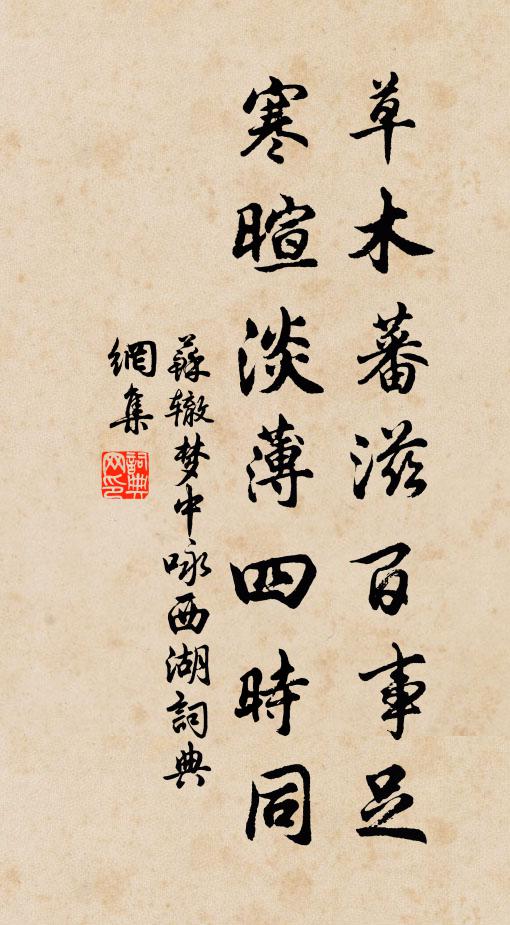 草木蕃滋百事足
寒暄淡薄四時同
蘇轍梦中咏西湖詞典
網集
詞典網印